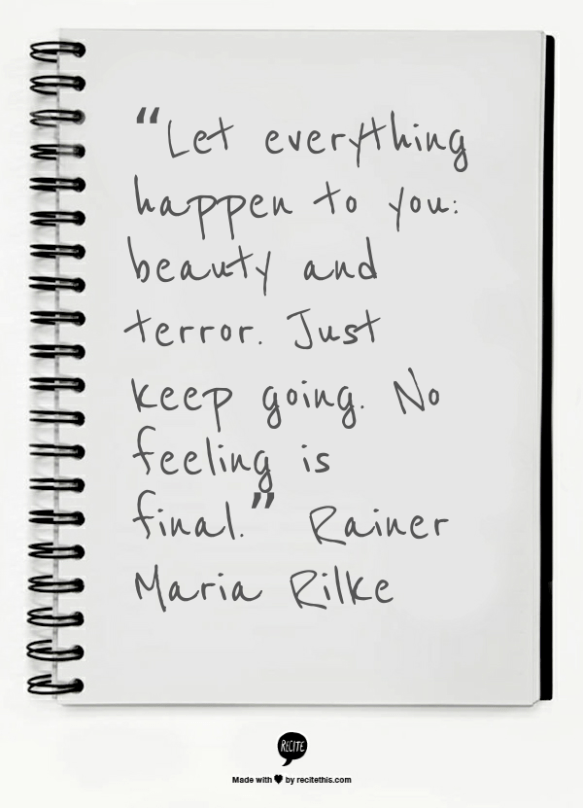 “Let everything
happen to you:
beauty and
terror. Just
keep going. No
feeling is
final.” Rainer
Maria Rilke
RECITE
Made with ♥ by recitethis.com